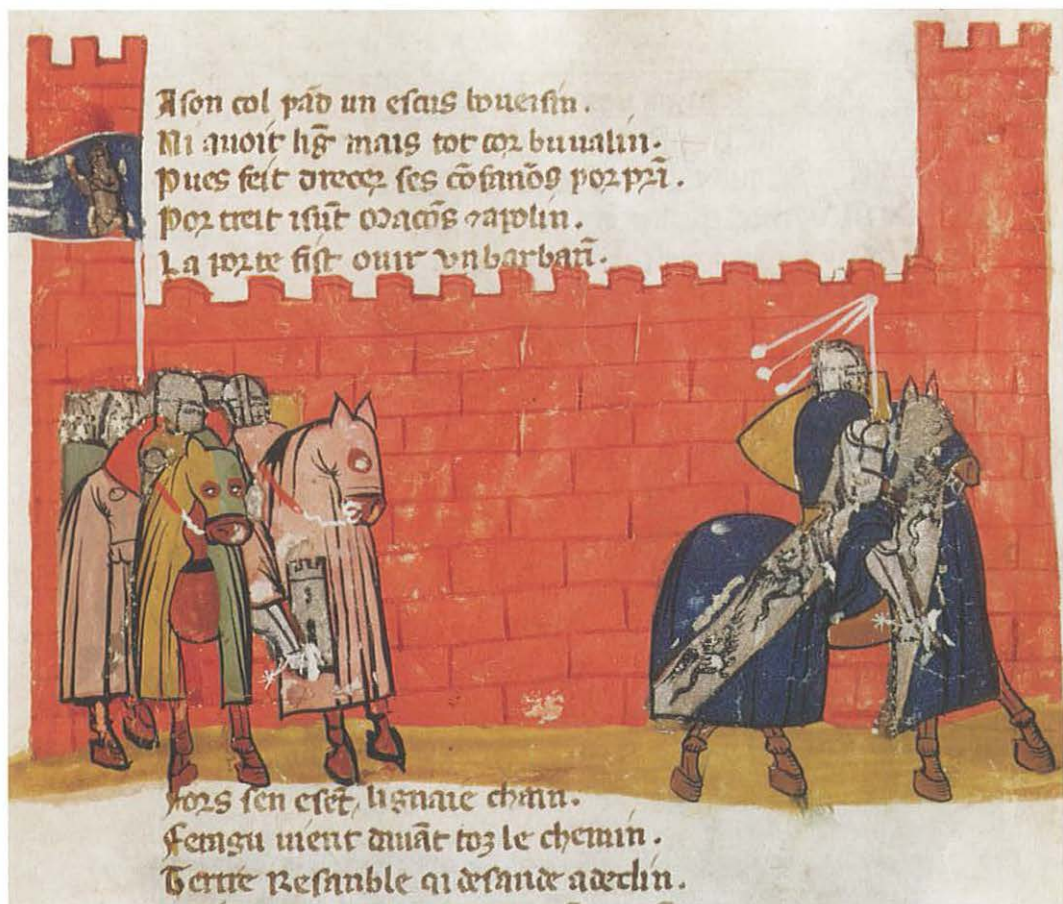 A son col pād un escus boueisin.
Ni auoit lig̅ mais tot cor buualin.
Pues feit drecer ses cōfanōs por pri̅.
Por treit i sūt dracōs ⁊ apolin.
La porte fist ouir vn barbari̅.
Fors sen eset, lignaie chain.
Feragu uient auāt toz le chemin.
Tertre Resanble qi desande a declin.